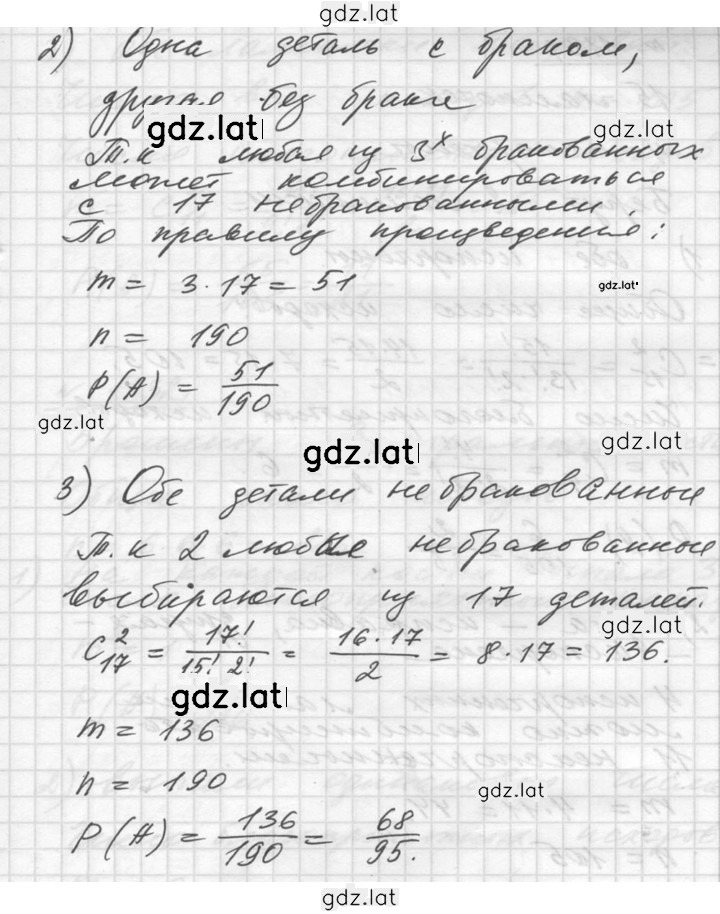 gdz.lat
2) Одна деталь с браком,
другая без брака
gdz.lat
gdz.lat
Т.к любая из 3х бракованных
может комбинироваться
с 17 небракованными.
По правилу произведения:
m = 3·17 = 51
gdz.lat
n = 190
P(A) = 51/190
gdz.lat
gdz.lat
gdz.lat
3) Обе детали небракованные
Т.к 2 любые небракованные
выбираются из 17 деталей.
gdz.lat
C²₁₇ = 17!/15! 2! = 16·17/2 = 8·17 = 136.
gdz.lat
m = 136
n = 190
gdz.lat
P(A) = 136/190 = 68/95.
gdz.lat